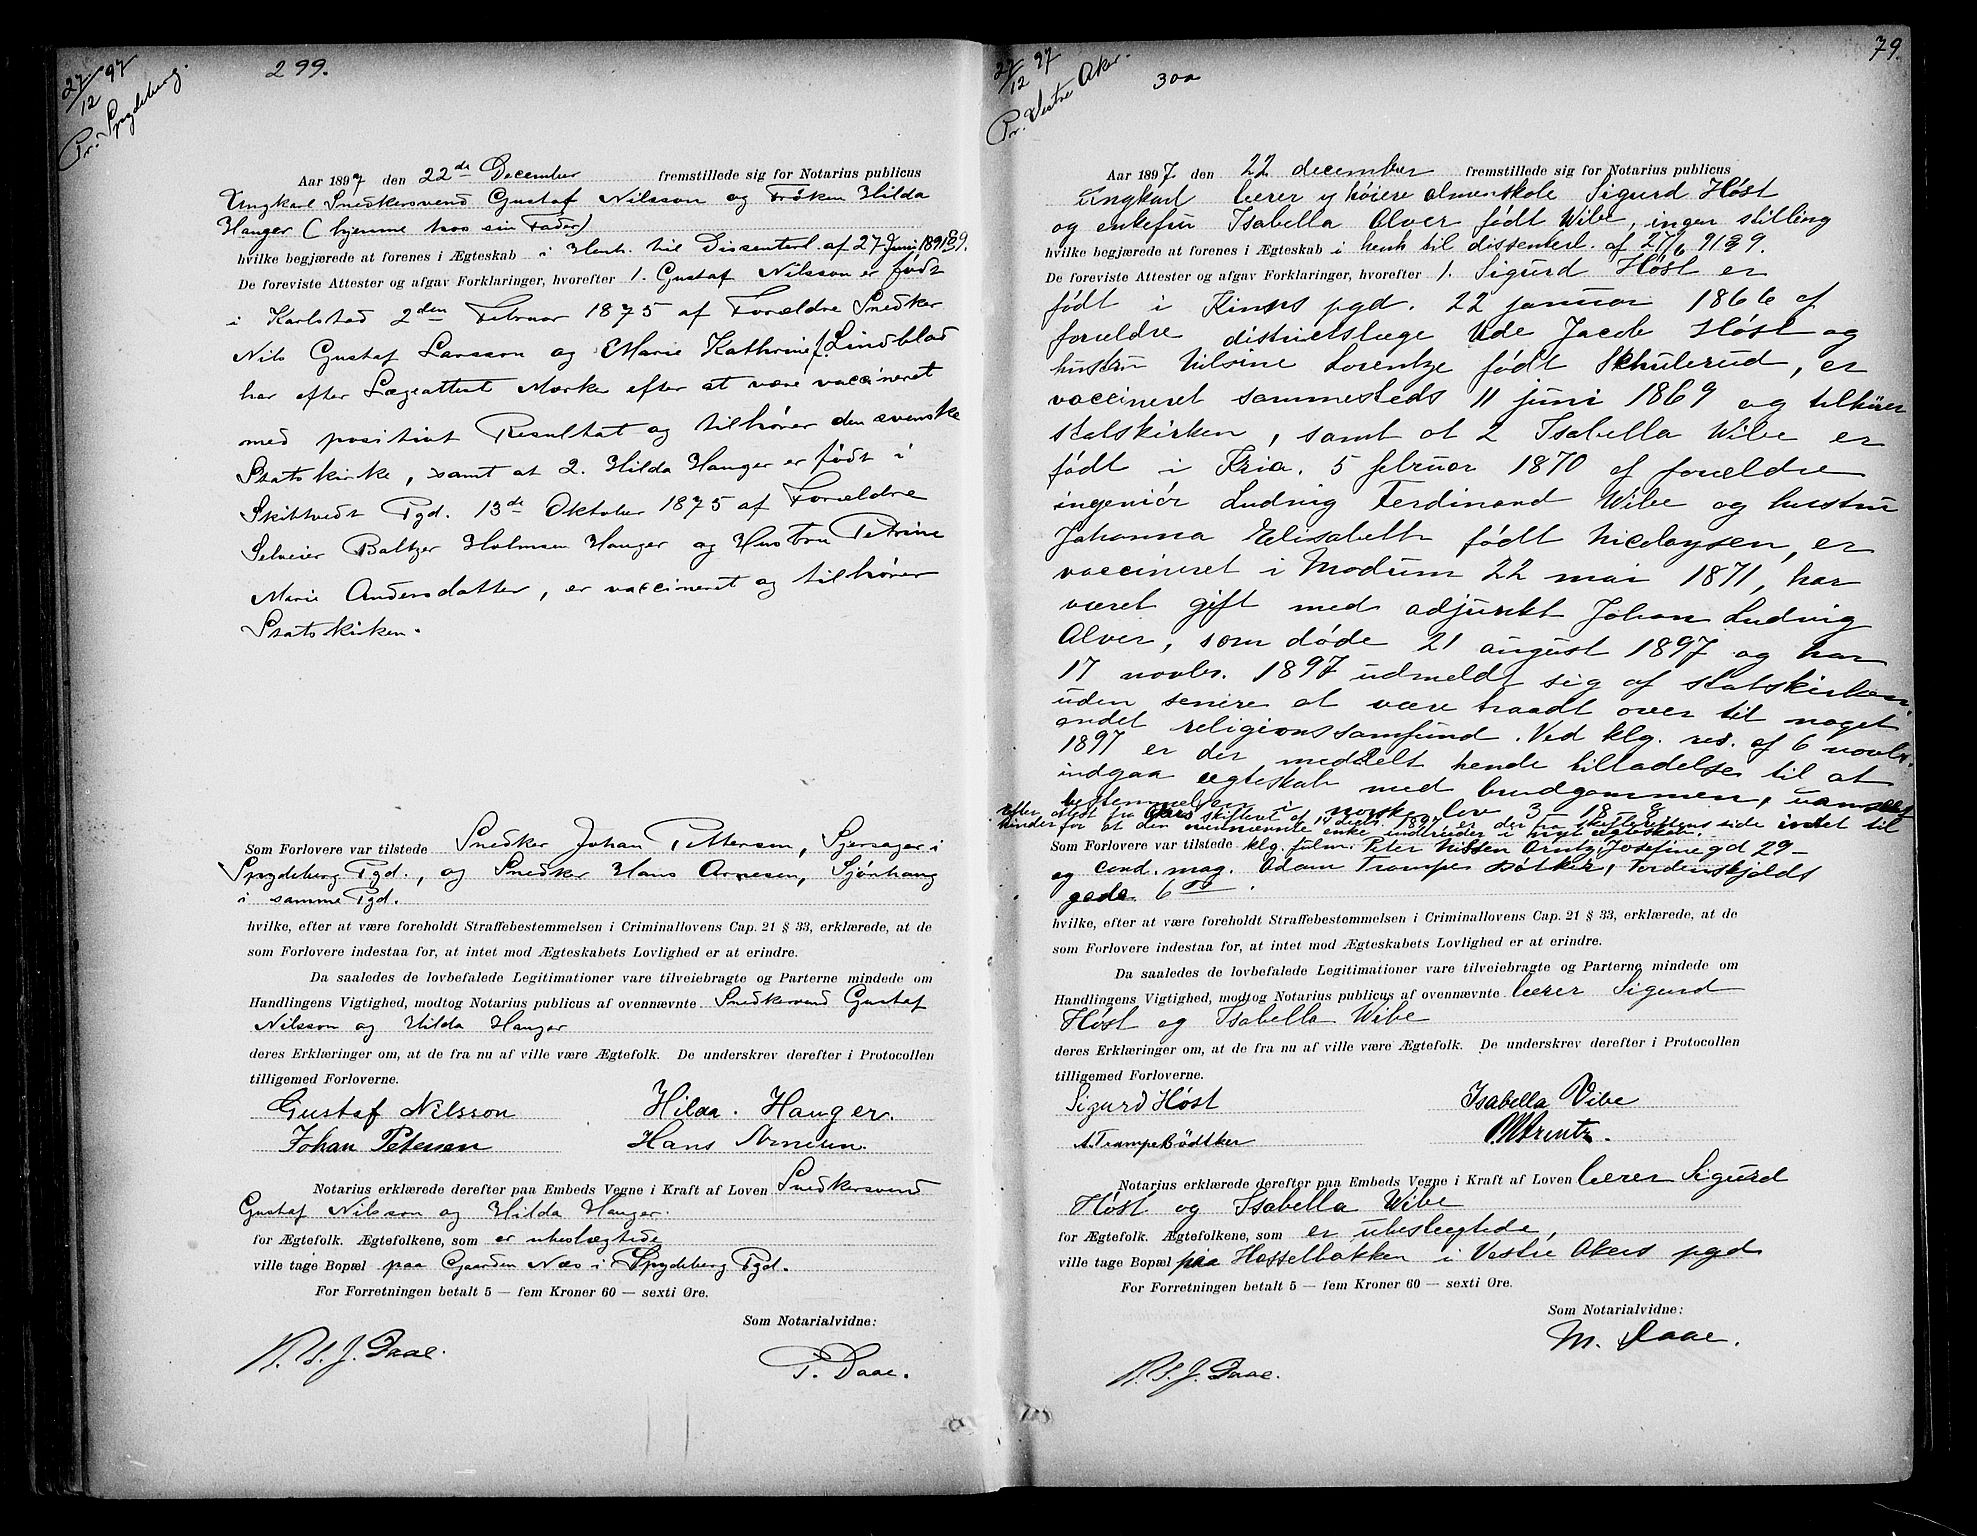 27/12 97
Pr. Spydeberg.
299.
Aar 1897 den 22de December fremstillede sig for Notarius publicus
Ungkarl Snedkersvend Gustaf Nilsson og Frøken Hilda
Hanger (hjemme hos sin Fader)
hvilke begjærede at forenes i Ægteskab i Henh. til Dissenterl. af 27 Juni 1891 § 9.
De foreviste Attester og afgav Forklaringer, hvorefter 1. Gustaf Nilsson er født
i Karlstad 2den Februar 1875 af Forældre Snedker
Nils Gustaf Larsson og Marie Kathrine f. Lindblad
har efter Lægeattest Mærke efter at være vaccineret
med positivt Resultat og tilhører den svenske
Statskirke, samt at 2. Hilda Hanger er født i
Skibtvedt Pgd. 13de Oktober 1875 af Forældre
Selveier Baltzer Holmsen Hanger og Hustru Petrine
Marie Andersdatter, er vaccineret og tilhører
Statskirken.
Som Forlovere var tilstede Snedker Johan Pettersen, i
Spydeberg Pgd., og Snedker Hans Arnesen,
i samme Pgd.
hvilke, efter at være foreholdt Straffebestemmelsen i Criminallovens Cap. 21 § 33, erklærede, at de
som Forlovere indestaa for, at intet mod Ægteskabets Lovlighed er at erindre.
Da saaledes de lovbefalede Legitimationer vare tilveiebragte og Parterne mindede om
Handlingens Vigtighed, modtog Notarius publicus af ovennævnte Snedkersvend Gustaf
Nilsson og Hilda Hanger
deres Erklæringer om, at de fra nu af ville være Ægtefolk. De underskrev derefter i Protocollen
tilligemed Forloverne.
Gustaf Nilsson Hilda. Hanger.
Johan Petersen Hans Arnesen.
Notarius erklærede derefter paa Embeds Vegne i Kraft af Loven Snedkersvend
Gustaf Nilsson og Hilda Hanger.
for Ægtefolk. Ægtefolkene, som er ubeslægtede
ville tage Bopæl paa Gaarden Næs i Spydeberg Pgd.
For Forretningen betalt 5 — fem Kroner 60 — sexti Øre.
Som Notarialvidne:
Daae.
Daae.
79.
27/12 97
Pr. Vestre Aker.
300
Aar 1897 den 22 december fremstillede sig for Notarius publicus
Ungkarl lærer v høiere almenskole Sigurd Høst
og enkefru Isabella Alver født Wibe, ingen stilling
hvilke begjærede at forenes i Ægteskab i henh til dissenterl. af 27/6 91 § 9.
De foreviste Attester og afgav Forklaringer, hvorefter 1. Sigurd Høst er
født i Kinns pgd. 22 januar 1866 af
forældre districtslæge Ude Jacob Høst og
hustru Nilsine Lorentze født Schulerud, er
vaccineret sammesteds 11 juni 1869 og tilhører
statskirken, samt at 2 Isabella Wibe er
født i Kria. 5 februar 1870 af forældre
ingeniør Ludvig Ferdinand Wibe og hustru
Johanna Elisabeth født Nicolaysen, er
vaccineret i Modum 22 mai 1871, har
været gift med adjunkt Johan Ludvig
Alver, som døde 21 august 1897 og har
17 novbr. 1897 udmeldt sig af statskirken
uden senere at være traadt over til noget
andet religionssamfund. Ved klg. res. af 6 novbr.
1897 er der meddelt hende tilladelse til at
indgaa ægteskab med brudgommen, uanseet
bestemmelsen i norsk lov 3 18 8
efter attest fra Akers skifteret af 17 decbr. 1897 er der fra skifterettens side intet til
hinder for at den ovennævnte enke indtræder i nyt ægteskab.
Som Forlovere var tilstede klg. fulm. Peter Nissen Arntz, Josefinegd 29 –
og cand. mag. Adam Trampe Bødtker, Tordenskjolds
gade 6
hvilke, efter at være foreholdt Straffebestemmelsen i Criminallovens Cap. 21 § 33, erklærede, at de
som Forlovere indestaa for, at intet mod Ægteskabets Lovlighed er at erindre.
Da saaledes de lovbefalede Legitimationer vare tilveiebragte og Parterne mindede om
Handlingens Vigtighed, modtog Notarius publicus af ovennævnte lærer Sigurd
Høst og Isabella Wibe
deres Erklæringer om, at de fra nu af ville være Ægtefolk. De underskrev derefter i Protocollen
tilligemed Forloverne.
Sigurd Høst Isabella Vibe
A. Trampe Bødtker PNArentz.
Notarius erklærede derefter paa Embeds Vegne i Kraft af Loven lærer Sigurd
Høst og Isabella Wibe
for Ægtefolk. Ægtefolkene, som er ubeslægtede,
ville tage Bopæl paa Hasselbakken i Vestre Akers pgd
For Forretningen betalt 5 — fem Kroner 60 — sexti Øre.
Som Notarialvidne:
M. Daae.
Daae.